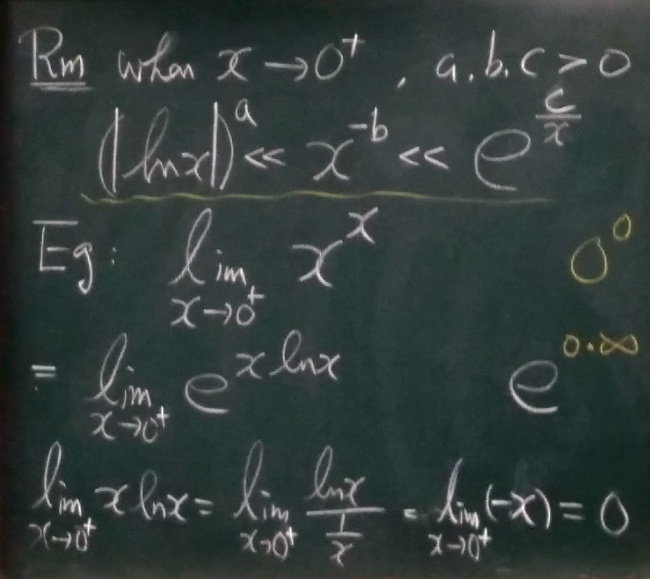 Rm when x → 0⁺ , a.b.c > 0
(|ln x|)^a << x^{-b} << e^{\frac{c}{x}}
Eg: lim_{x→0⁺} x^x 0^0
= lim_{x→0⁺} e^{x ln x} e^{0·∞}
lim_{x→0⁺} x ln x = lim_{x→0⁺} \frac{ln x}{\frac{1}{x}} = lim_{x→0⁺} (-x) = 0